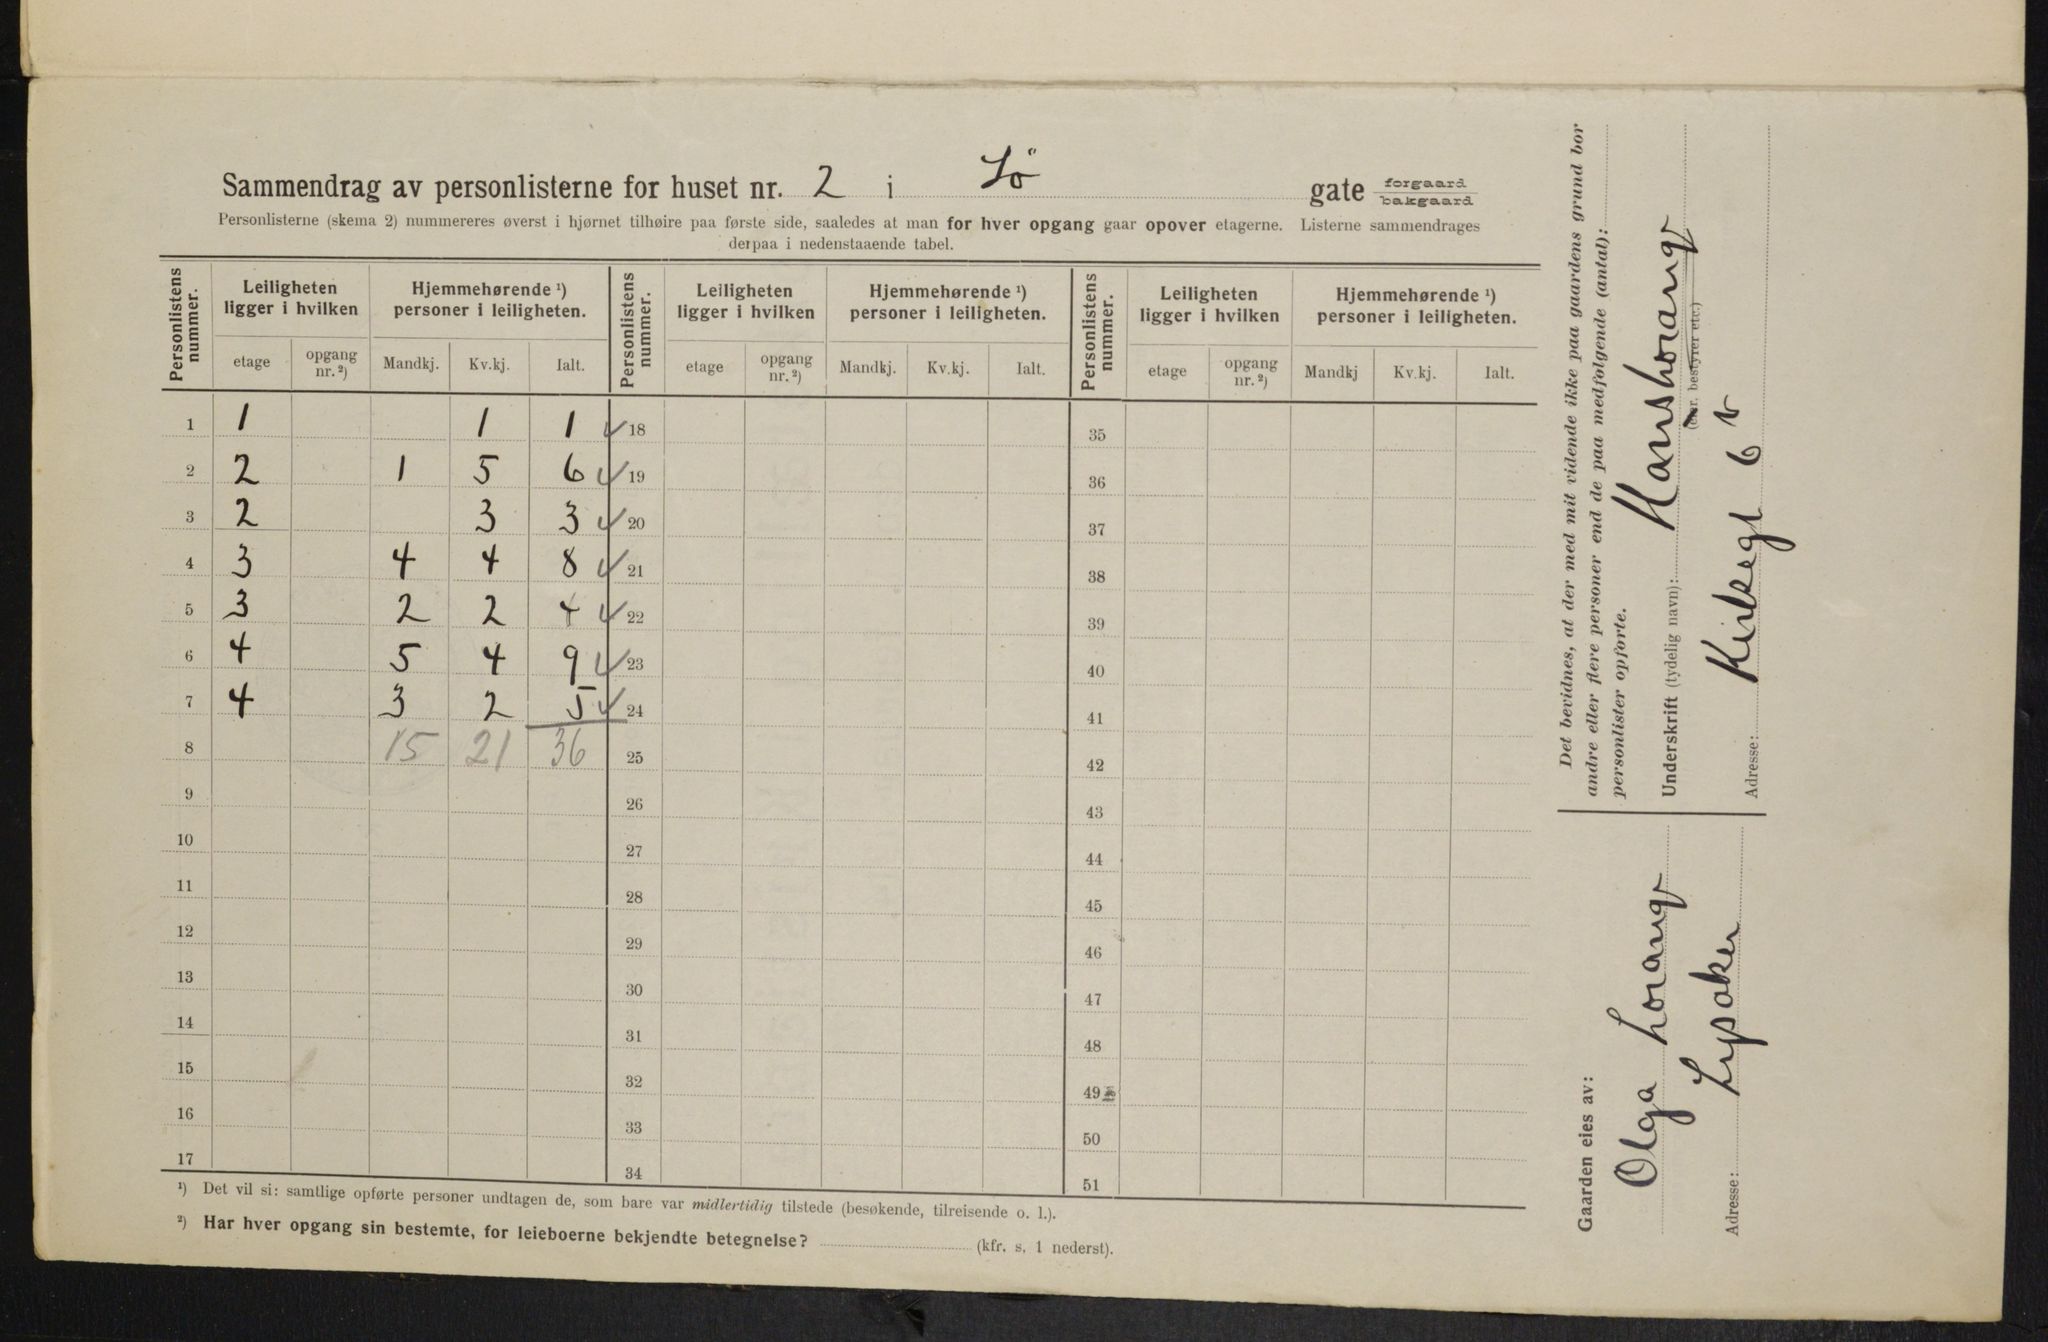 Sammendrag av personlisterne for huset nr. 2 i Sö gate forgaard bakgaard
Personlisterne (skema 2) nummereres øverst i hjørnet tilhøire paa første side, saaledes at man for hver opgang gaar opover etagerne. Listerne sammendrages
derpaa i nedenstaaende tabel.
Personlistens nummer. Leiligheten ligger i hvilken Hjemmehørende ¹) personer i leiligheten. Personlistens nummer. Leiligheten ligger i hvilken Hjemmehørende ¹) personer i leiligheten. Personlistens nummer. Leiligheten ligger i hvilken Hjemmehørende ¹) personer i leiligheten.
etage opgang nr. ²) Mandkj. Kv.kj. Ialt. etage opgang nr. ²) Mandkj. Kv.kj. Ialt. etage opgang nr. ²) Mandkj Kv.kj. Ialt.
1 1 1 1 18 35
2 2 1 5 6 19 36
3 2 3 3 20 37
4 3 4 4 8 21 38
5 3 2 2 4 22 39
6 4 5 4 9 23 40
7 4 3 2 5 24 41
8 15 21 36 25 42
9 26 43
10 27 44
11 28 45
12 29 46
13 30 47
14 31 48
15 32 49
16 33 50
17 34 51
¹) Det vil si: samtlige opførte personer undtagen de, som bare var midlertidig tilstede (besøkende, tilreisende o. l.).
²) Har hver opgang sin bestemte, for leieboerne bekjendte betegnelse? (kfr. s. 1 nederst).
Det bevidnes, at der med mit vidende ikke paa gaardens grund bor
andre eller flere personer end de paa medfølgende (antal):
personlister opførte.
Underskrift (tydelig navn): Hans Lorang
(eier. bestyrer etc.)
Adresse: Kirkegt 6 b
Gaarden eies av:
Olga Lorang
Adresse: Lysaker